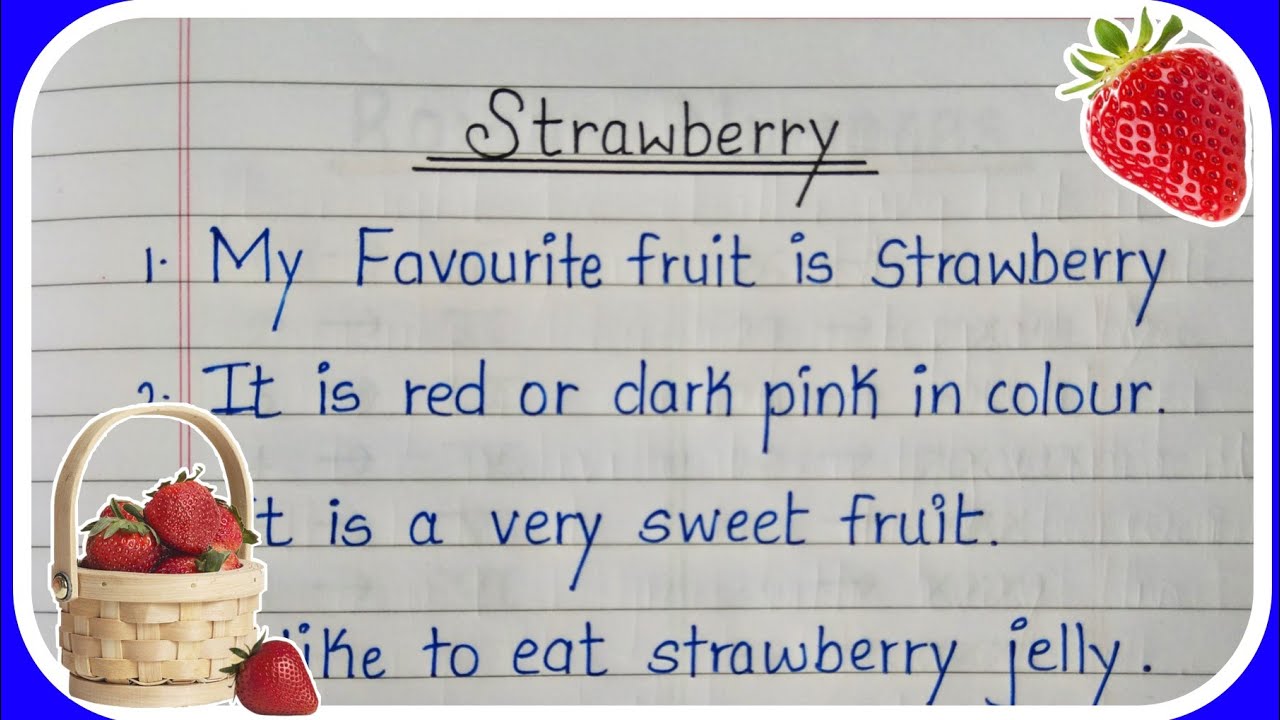 Strawberry
1. My Favourite fruit is Strawberry
2. It is red or dark pink in colour.
is a very sweet fruit.
to eat strawberry jelly.